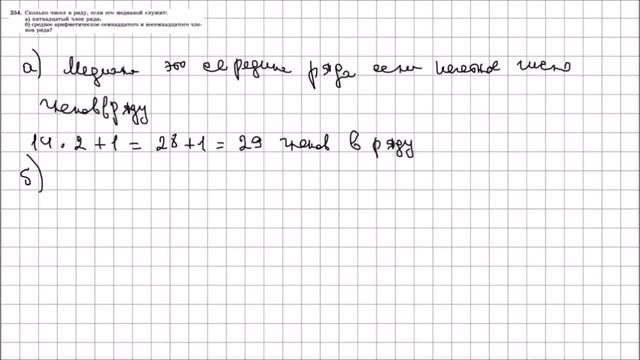 254. Сколько чисел в ряду, если его медианой служит:
а) пятнадцатый член ряда;
б) среднее арифметическое семнадцатого и восемнадцатого чле-
нов ряда?
а) Медиана это середина ряда если нечетное число
членов в ряду
14 · 2 + 1 = 28 + 1 = 29 членов в ряду
б)